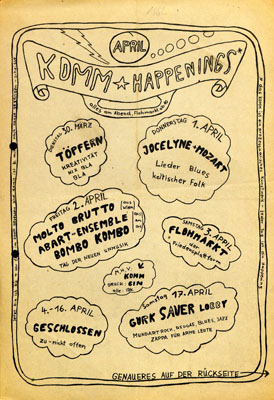 APRIL
KOMM ☆ HAPPENINGS*
30. MÄRZ
TÖPFERN
KREATIVITÄT
MIX BLA
BLA
DONNERSTAG 1. APRIL
JOCELYNE-MOZART
Lieder Blues
keltischer Folk
FREITAG 2. APRIL
MOLTO BRUTTO
ABART-ENSEMBLE
BOMBO KOMBO
TAG DER NEUEN UNMUSIK
SAMSTAG 3. APRIL
FLOHMARKT
von
Friedensplattform
KOMM
GIN
4.-16. APRIL
GESCHLOSSEN
zu - nicht offen
Samstag 17. APRIL
GURK SAUER LOBBY
MUNDART ROCK, REGGAE, BLUES, JAZZ
ZAPPA FÜR ARME LEUTE
GENAUERES AUF DER RÜCKSEITE